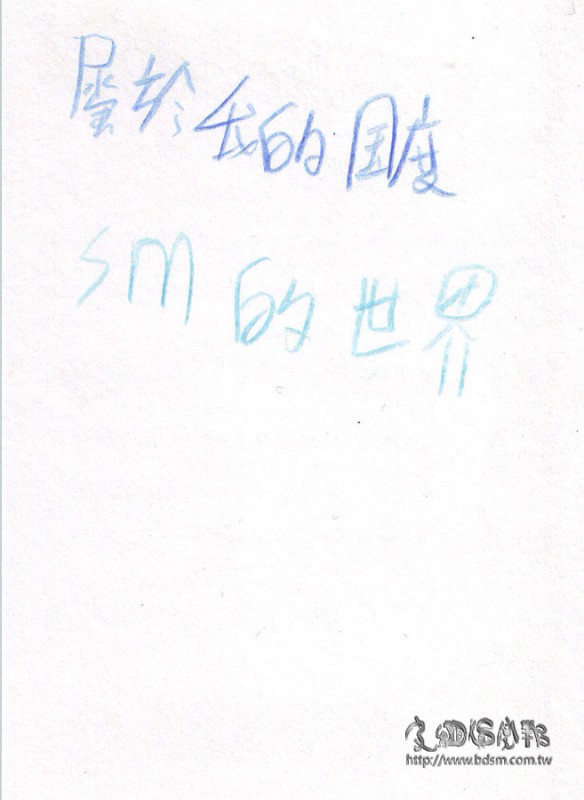 屬於我的国度
SM 的世界
http://www.bdsm.com.tw